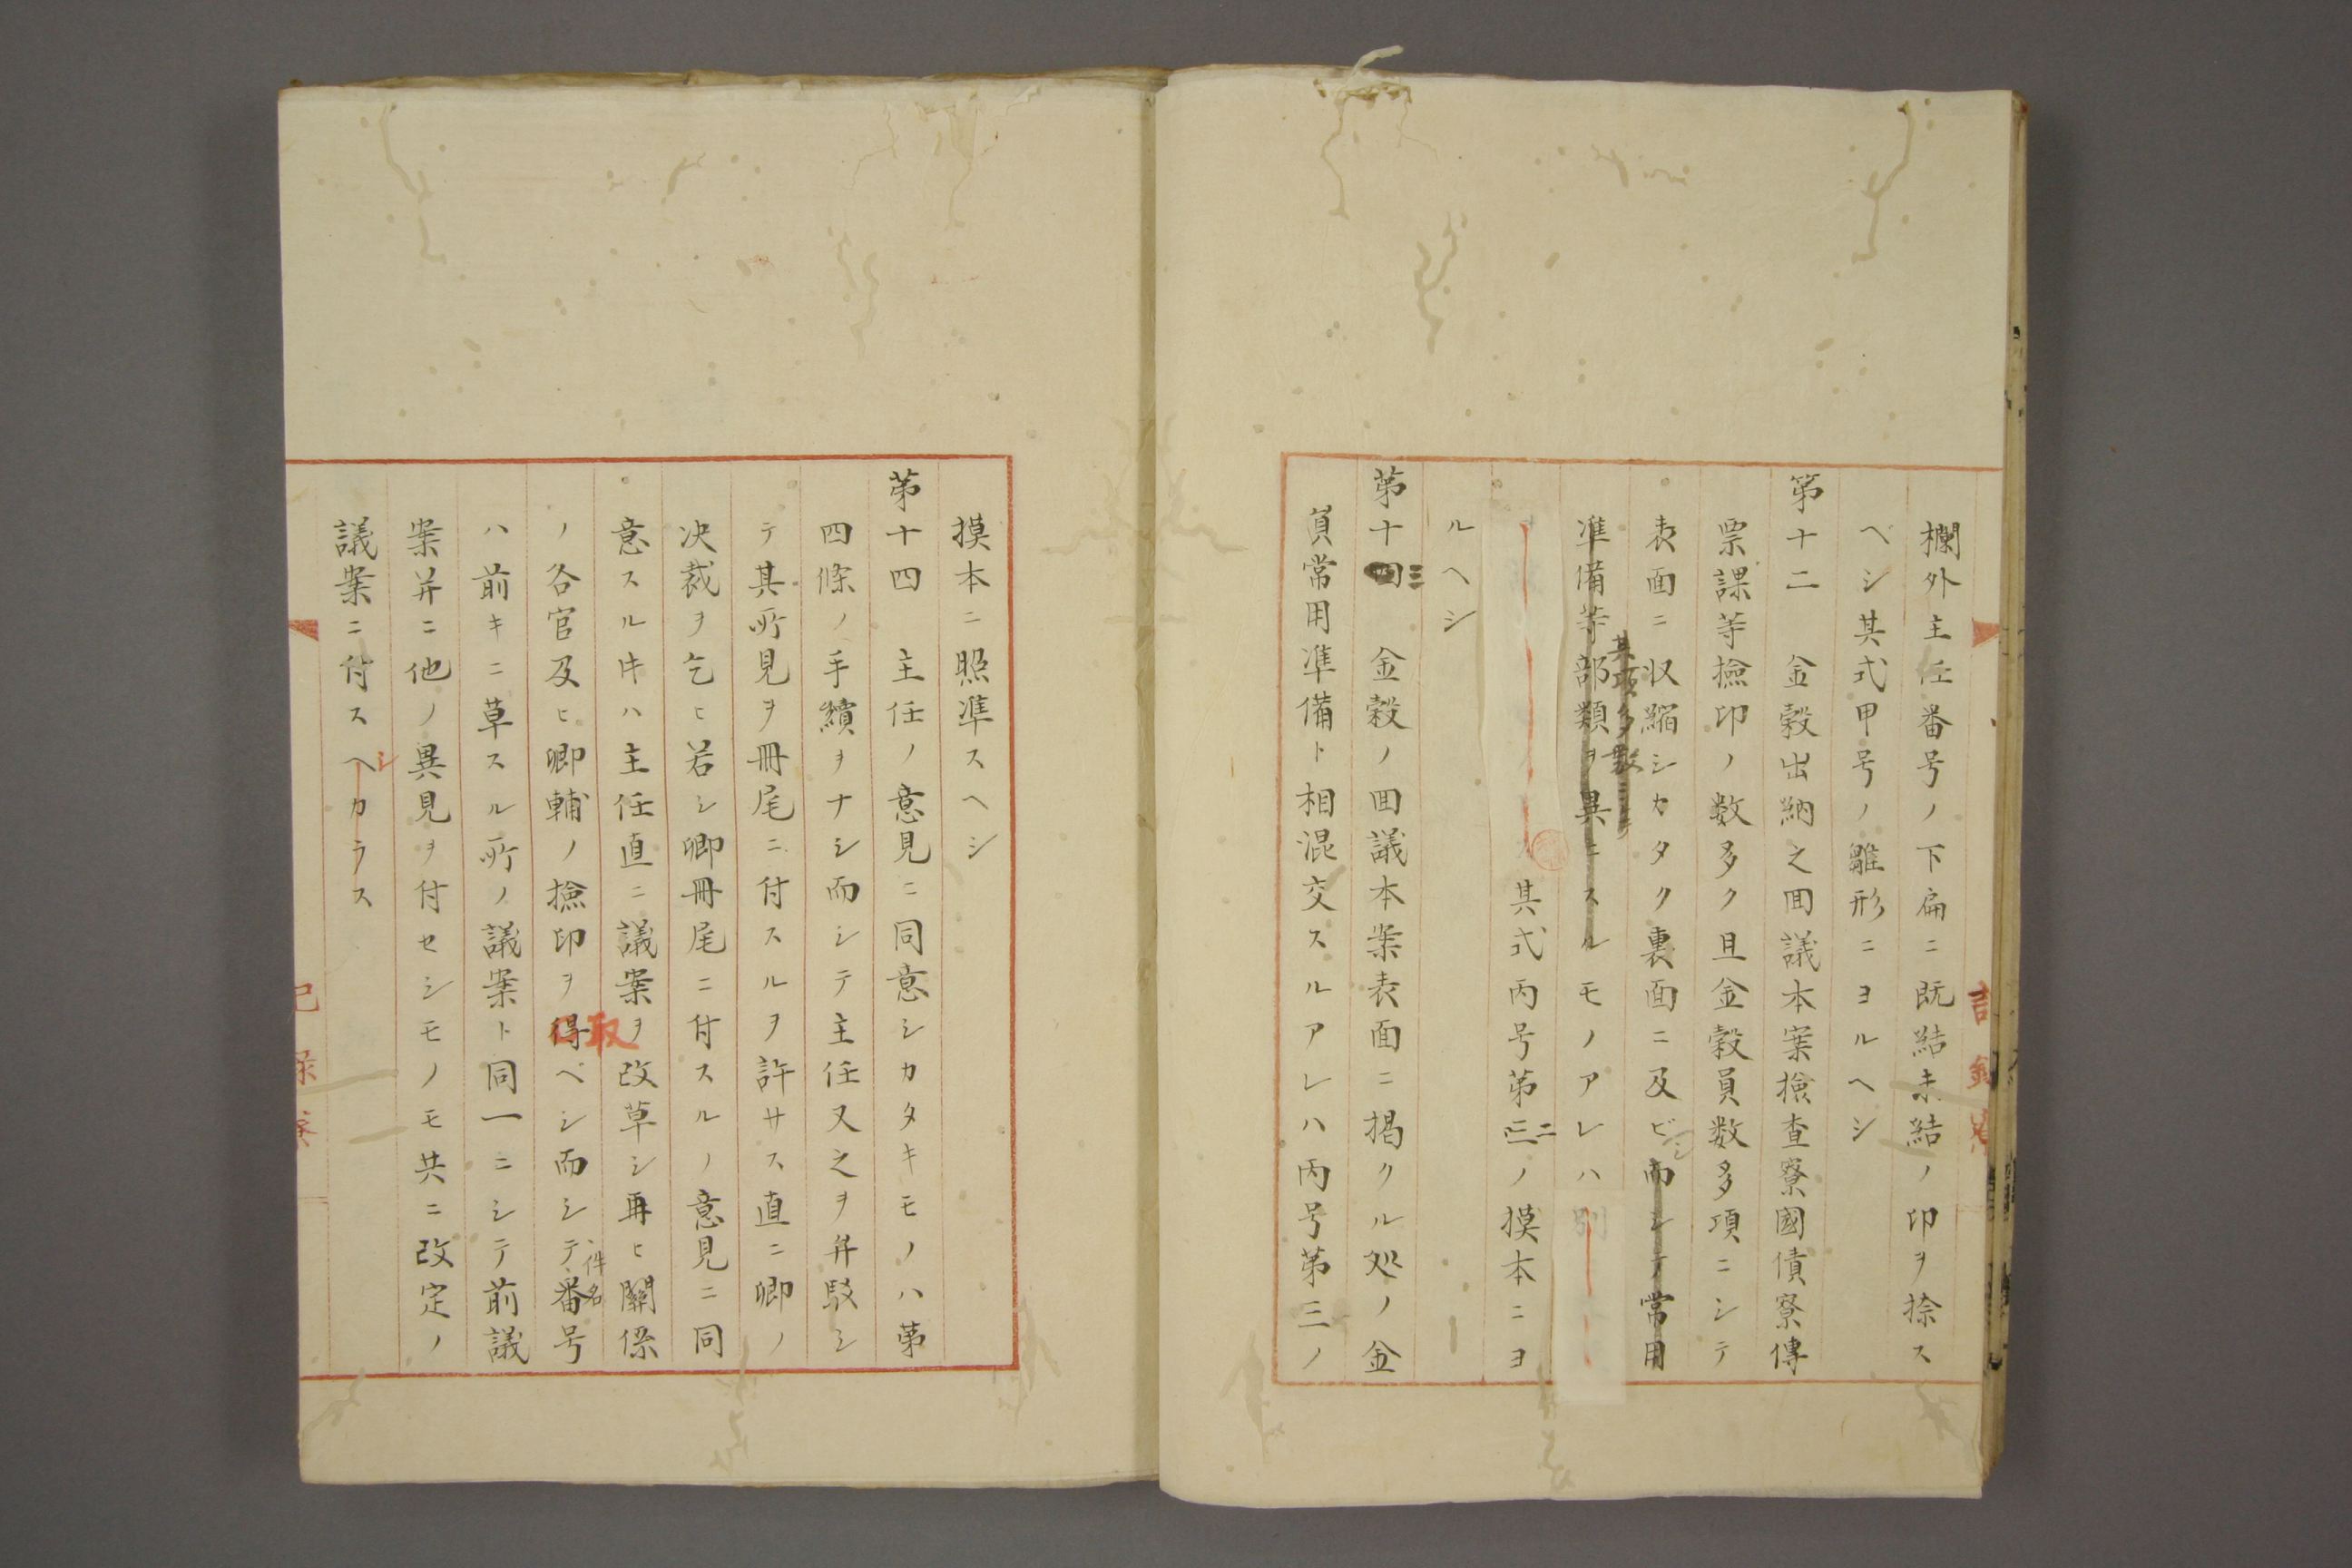 欄外主任番号ノ下扁ニ既結未結ノ印ヲ捺ス
ヘシ其式甲号ノ雛形ニヨルヘシ
第十二　金穀出納之回議本案撿査寮國債寮傳
票課等撿印ノ数多ク且金穀員数多項ニシテ
表面ニ収縮シカタク裏面ニ及ビ而シテ常用
其項多数ニシテ
準備等部類ヲ異ニスルモノアレハ別
其式丙号第三二ノ摸本ニヨ
ルヘシ
第十四三　金穀ノ回議本案表面ニ掲クル処ノ金
員常用準備ト相混交スルアレハ丙号第三ノ
摸本ニ照準スヘシ
第十四　主任ノ意見ニ同意シカタキモノハ第
四條ノ手續ヲナシ而シテ主任又之ヲ弁駁シ
テ其所見ヲ冊尾ニ付スルヲ許サス直ニ卿ノ
决裁ヲ乞ヒ若シ卿冊尾ニ付スルノ意見ニ同
意スル牛ハ主任直ニ議案ヲ改草シ再ヒ關係
取
件名
ノ各官及ヒ卿輔ノ撿印ヲ得ベシ而シテ番号
ハ前キニ草スル所ノ議案ト同一ニシテ前議
案并ニ他ノ異見ヲ付セシモノモ共ニ改定ノ
シ
議案ニ付スヘカラス